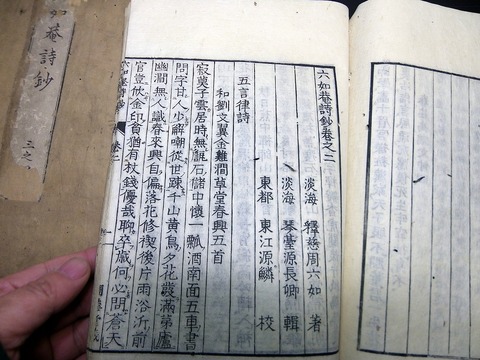 六如菴詩鈔卷之二
淡海 釋慈周六如 著
淡海 琴臺源長卿 輯
東都 東江源鱗 校
五言律詩
和劉文翼金雞澗草堂春興五首
寂寞子雲居時無甔石儲中懷一瓢酒南面五車書
問字甘人少解嘲從世踈千山黃鳥夕花護滿茅廬
幽澗無人識春來興自偏落花修禊後片雨浴沂前
官豈金印貧猶有杖錢優哉聊卒歲何必問蒼天
六如菴詩鈔 卷二
如菴詩鈔 三之